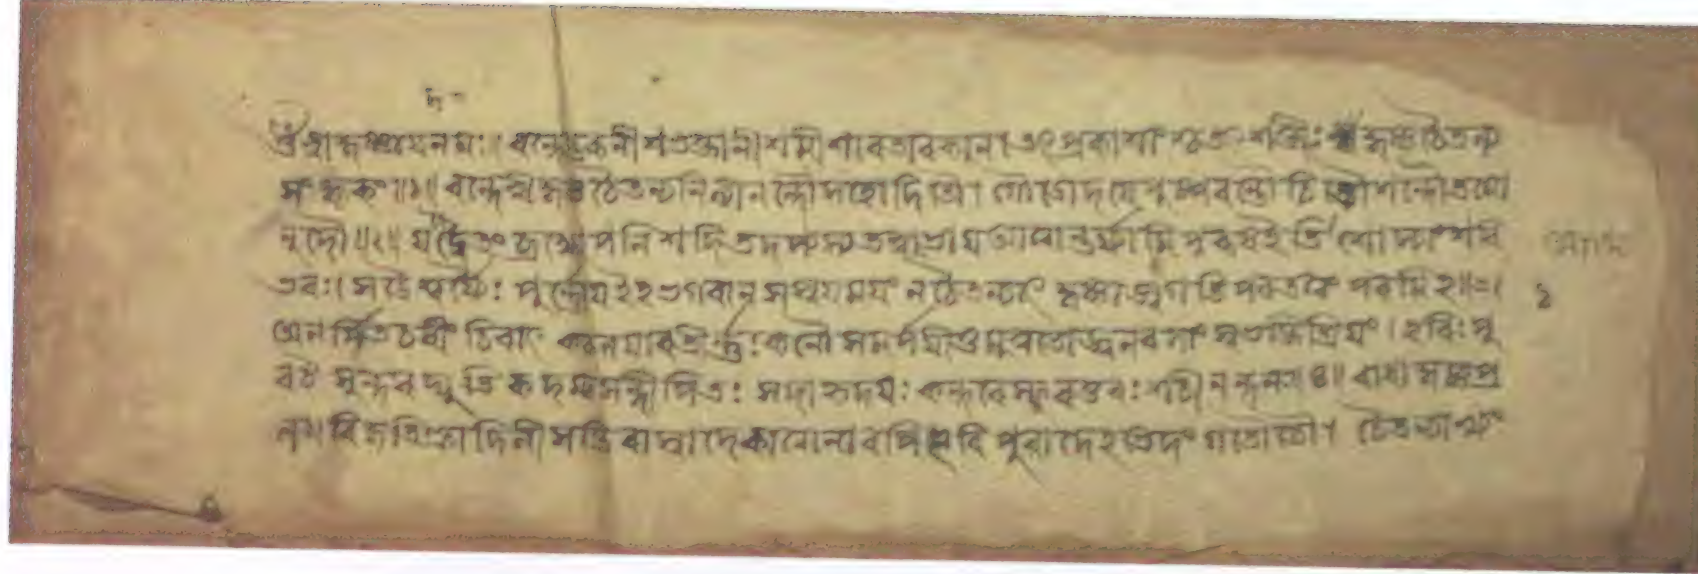 শ্রীকৃষ্ণায় নমঃ। বন্দে গুরূনীশভক্তানীশমীশাবতারকান। তৎপ্রকাশাংশ্চ তচ্ছক্তিঃ কৃষ্ণচৈতন্য
সংজ্ঞকং॥১॥ বন্দে শ্রীকৃষ্ণচৈতন্যনিত্যানন্দৌ সহোদিতৌ। গৌড়োদয়ে পুষ্পবন্তৌ চিত্রৌ শন্দৌ তমো
নুদৌ॥২॥ যদদ্বৈতং ব্রহ্মোপনিশদি তদপ্যস্য তনুভা য আত্মান্তর্য্যামি পুরুষ ইতি শোস্যাংশবি
ভবঃ। সড়ৈশ্বর্য্যৈঃ পূর্ন্নো য ইহ ভগবান স স্বয়ময়ং ন চৈতন্যাৎ কৃষ্ণাজ্জগতি পরতত্বং পরমিহ॥৩॥
অনর্পিতচরীং চিরাৎ করুনয়াবতীর্ন্নঃ কলৌ সমর্পয়িতুমুন্নতোজ্জ্বলরসাং স্বভক্তিশ্রিয়ং। হরিঃ পু
রট সুন্দরদ্যুতিকদম্বসন্দীপিতঃ সদা হৃদয়কন্দরে স্ফুরতু বঃ শচীনন্দনঃ॥৪॥ রাধা কৃষ্ণপ্র
নয়বিকৃতিহ্লাদিনীসক্তিরস্মাদেকাত্মানাবপি ভুবি পুরা দেহভেদং গতৌ তৌ। চৈতন্যাখ্যং
১